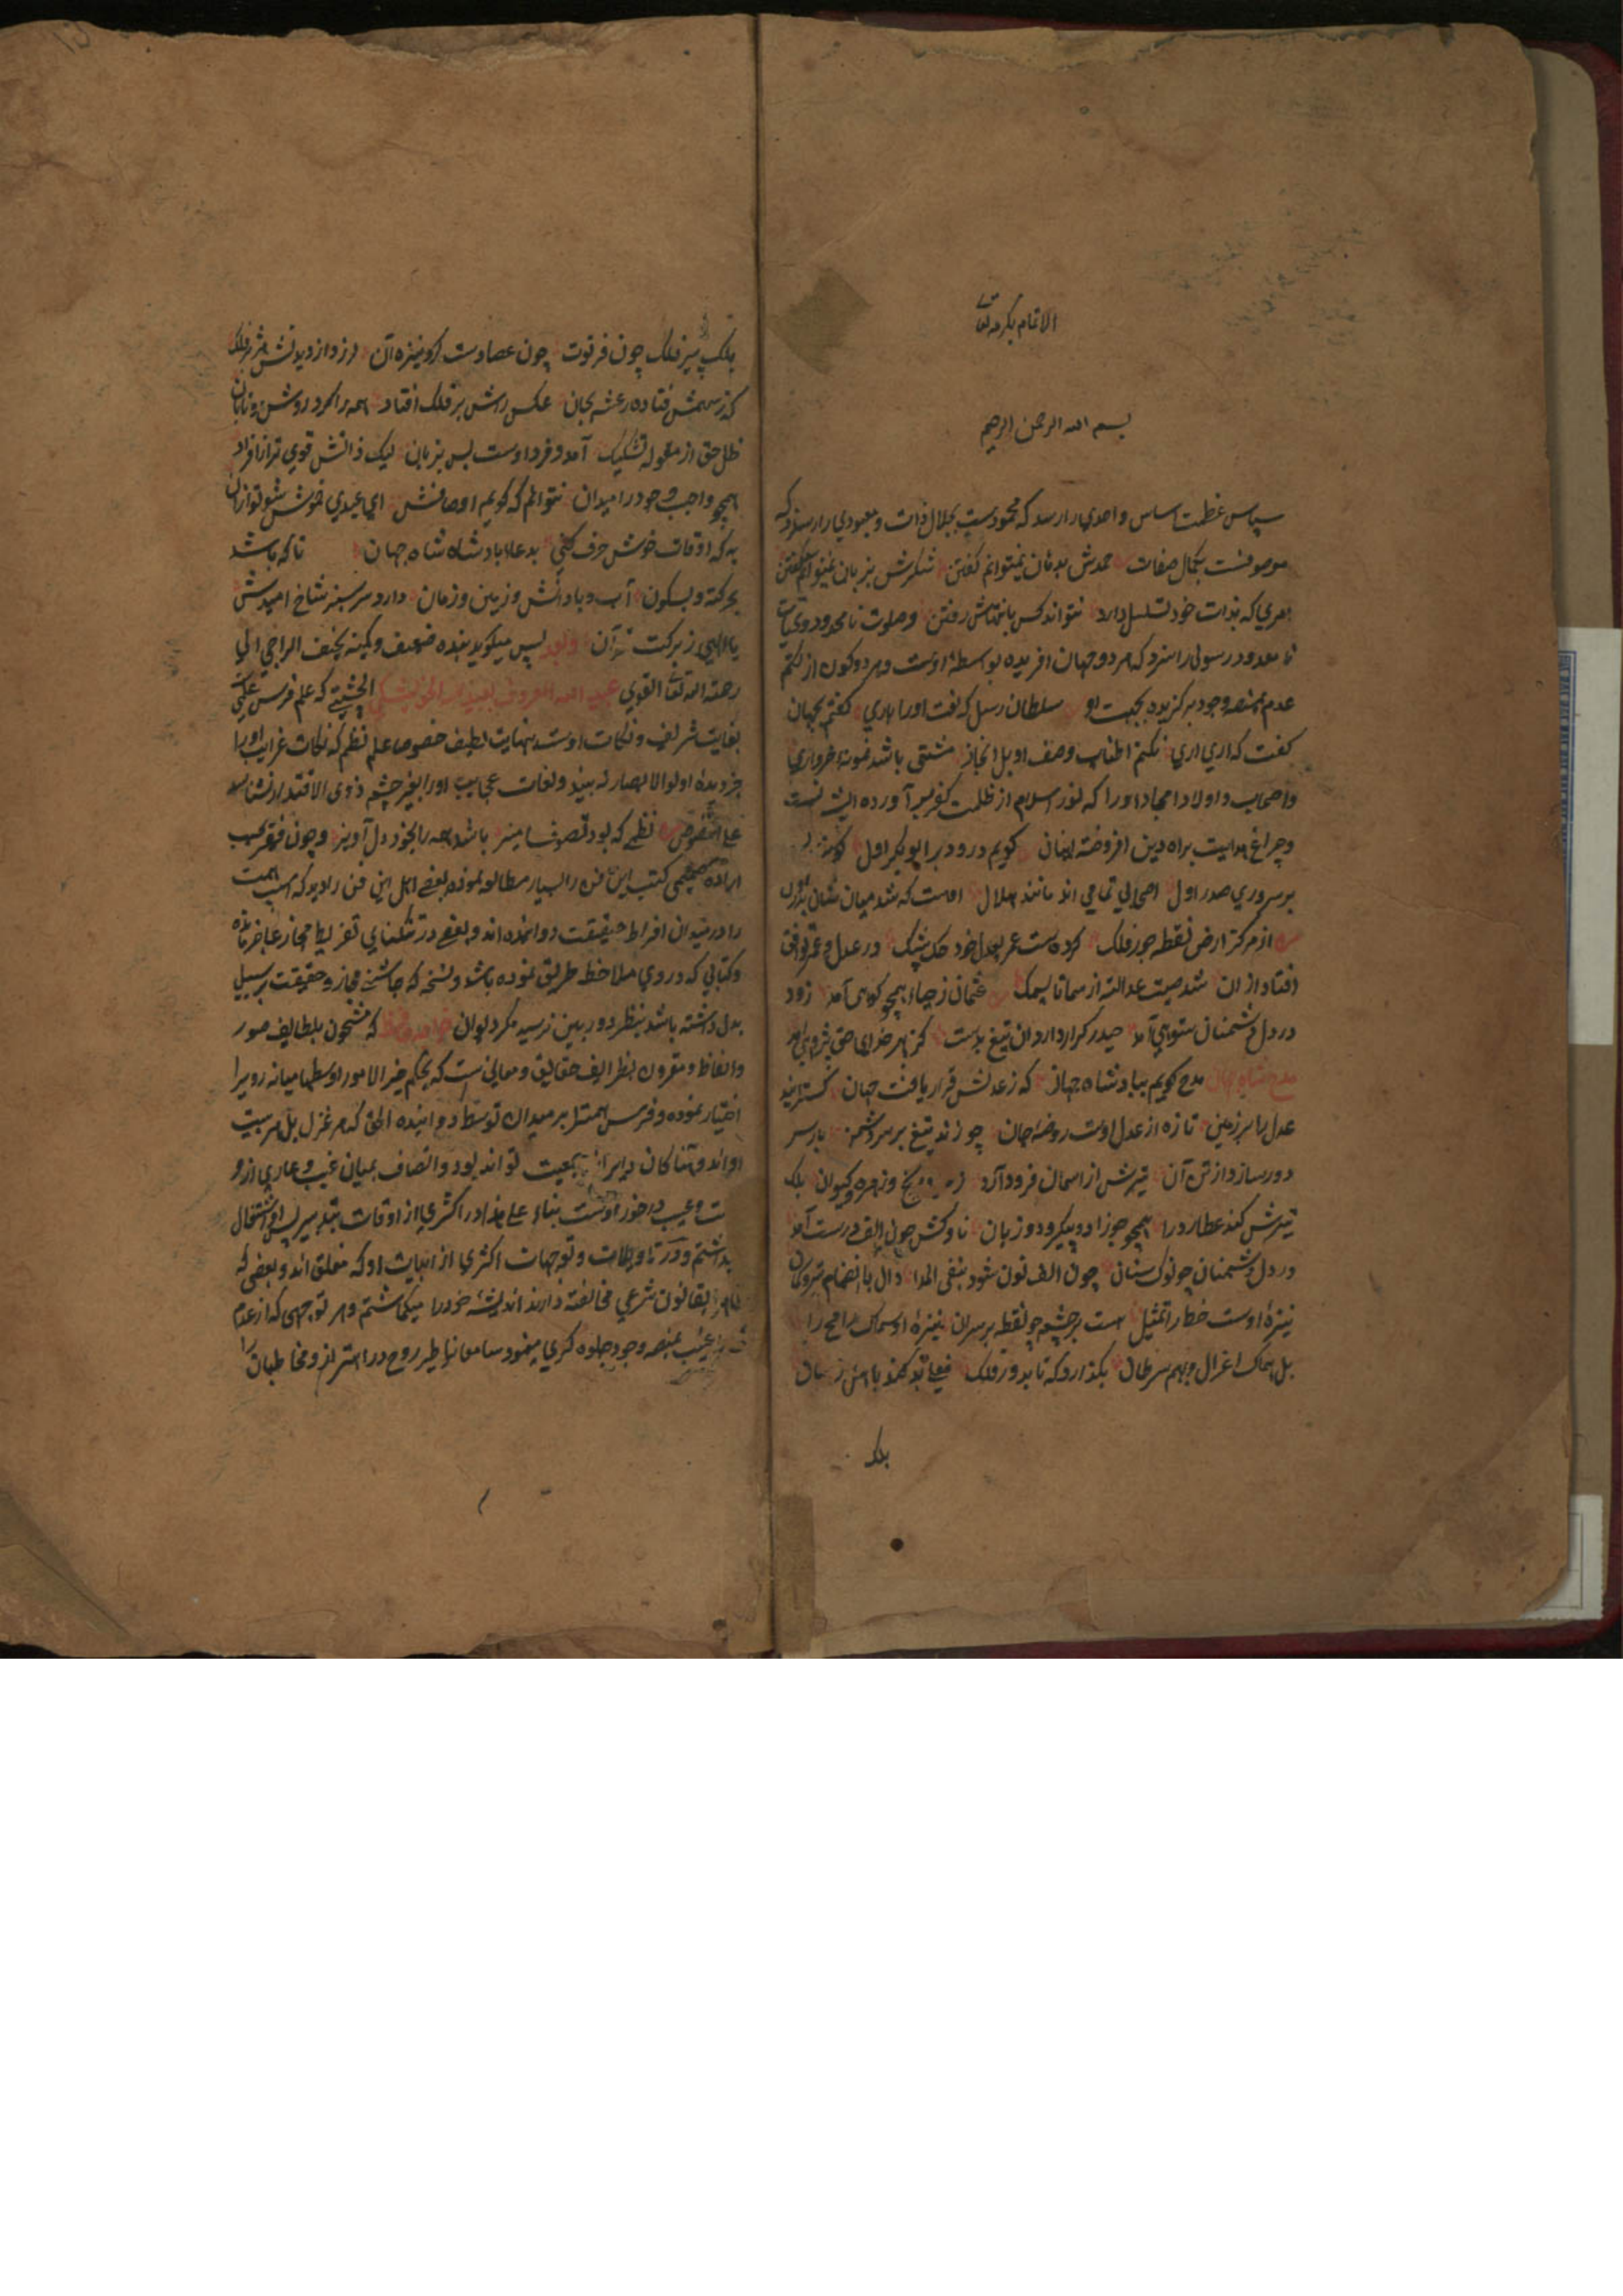 الاتمام بکرمه تعالی
بسم الله الرحمن الرحیم
سپاس عظمت اساس واحدی را رسد که محمودست بجلال ذات و معبودی را رسزد که
موصوفست بکمال صفات حمدش بدهان نمیتوانم گفتن شکرش بزبان نمیتوانم گفتن
امری که بذات خود تسلسل دارد نتواند کس بانتهاش رفتن وصلوت نامحدود و تحیات
نامعدود رسولی را سزد که هر دو جهان افریده بواسطهٔ اوست و هر دو کون از کتم
عدم بمنصه وجود برگزیده بجهت او سلطان رسل که نعت اورا باری گفتم بجهان
گفت که اری اری نکنم اطناب وصف او بل ایجاز مشتی باشد نمونهٔ خرواری
واصحاب و اولاد امجاد اورا که نور اسلام از ظلمت کفر بر آورده ایشانست
وچراغ هدایت براه دین افروخته ایشان گویم درود بر ابوبکر اول
بر سروری صدر اول اصحابی تمامی اند مانند هلال اوست که شد میان شان بدر
از مرکز ارض نقطه جور فلک کرده ست عمر بعدل خود حک بیشک در عدل و عمر توافق
افتاد ازان شد صیت عدالتش از سما تا بسمک عثمان ز حیا همچو کوهی آمد زود
در دل دشمنان ستوهی آمد حیدر کرار دارد ان تیغ بدست کز بهر خدای حق پژوهی آمد
مدح شاه جهان مدح گویم ببادشاه جهان که زعدلش قرار یافت جهان گسترانید
عدل را بر زمین تازه از عدل اوست روضه جان چو زند تیغ بر سر دشمن بار سر
دور سازد از تن آن تیرش از اسمان فرود آرد وزهره و کیوان بلک
تیرش کند عطارد را همچو جوزا دو پیکر و دو زبان ناوکش چون الف درست آمد
در دل دشمنان چو نوک سنان چون الف نون شود بنفی اعدا دال با انضمام تیر و کمان
نیزهٔ اوست خط را تمثیل هست بر چشم چو نقطه بر سر ان نیزهٔ او سماک رامح را
بل سماک اعزال و بهم سرطان بگذارد که تابد در فلک
بلک
بلک پیر فلک چون فرتوت چون عصا دست کرد نیزه آن لرزد از دیدنش بر فلک
کز سهمش فتاده رعشه بجان عکس راش بر فلک افتاد همه را کرد روشن و تابان
ظل حق از مقوله تشکیک آمد و فرد اوست بس بزبان لیک ذاتش قوی تر از افراد
همچو واجب وجود را میدان نتوانم که گویم اوصافش ای عبیدی خوش شو تو ازان
به که اوقات خوش حرف کنی بدعا بادشاه شاه جهان تا که باشد
بحرکت و بسکون آب و باد آتش و زمین و زمان دارد سر سبز شاخ امیدش
یا الهی ز برکت قرآن وبعد پس میگوید بنده ضعیف و کمینه نحیف الراجی الی
رحمة الله تعالی القوی عبید الله المعروف بعبید الخویشکی الچشتی که علم فرس
بغایت شریف و نکات اوست بنهایت لطیف خصوصا علم نظم که نکات غرایب اورا
جز دیده اولو الابصار نه بیند ولغات عجایب اورا بغیر چشم ذوی الاقتدار نشناسد
علی الخصوص نظمی که بود تصوف امیز باشد همه را بخود دل آویز و چون فقیر
کتب این فن را بسیار مطالعه نموده بعضی اهل این فن را دید که اسپ همت
را در میدان افراط حقیقت دوانده اند و بعضی در تنگنایی تفریط مجاز عاجز مانده
وکتابی که در وی ملاحظه طریق نموده باشد و نسخه که چاشنی مجاز و حقیقت بر سبیل
بدل داشته باشد بنظر دوربین نرسید مگر دیوان خواجه حافظ که مشحون بلطایف صور
والفاظ و مقرون بظرایف حقایق و معانی ست که بحکم خیر الامور اوسطها میانه روی را
اختیار نموده و فرس همت را بر میدان توسط دوانیده الحق که هر غزل بل هر بیت
جمعیت تواند بود و انصاف بمیان غیب و عاری ازو
وعیب در خور اوست بناء علی هذا در اکثری از اوقات بتدبیر اشتغال
بداشتم و در تاویلات و توجیهات اکثری از ابیات او که مغلق اند و بعضی که
بظاهر بقانون شرعی مخالفت دارند اندیشه خود را میگماشتم و هر توجیهی که از عدم
غیب بمنصه وجود جلوه گری مینمود سامعان را طیر روح در اهتزاز و مخاطبان را